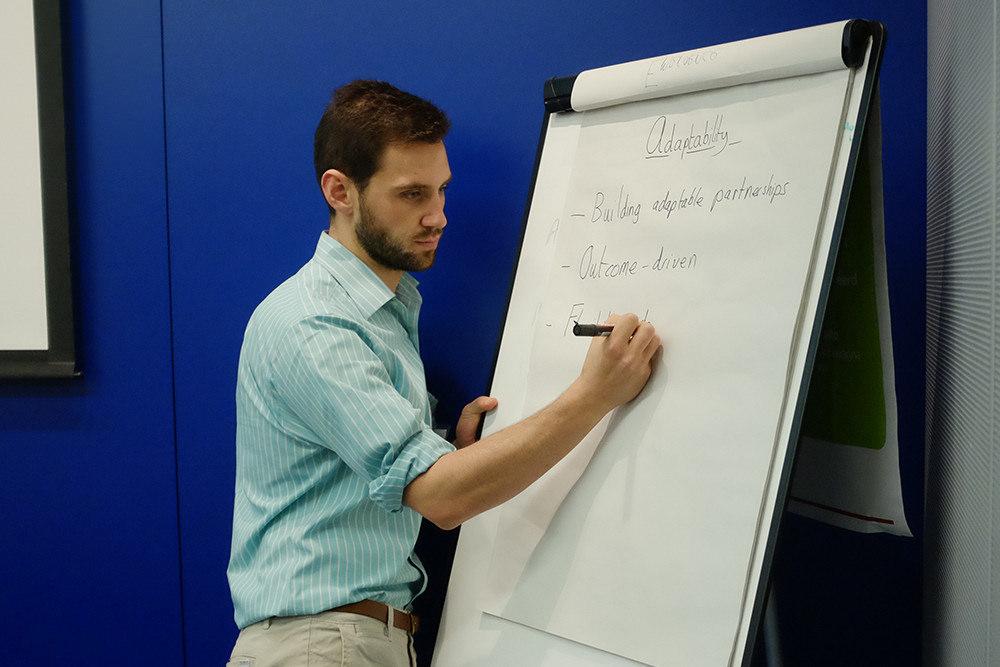 Adaptability
- Building adaptable partnerships
- Outcome-driven
-